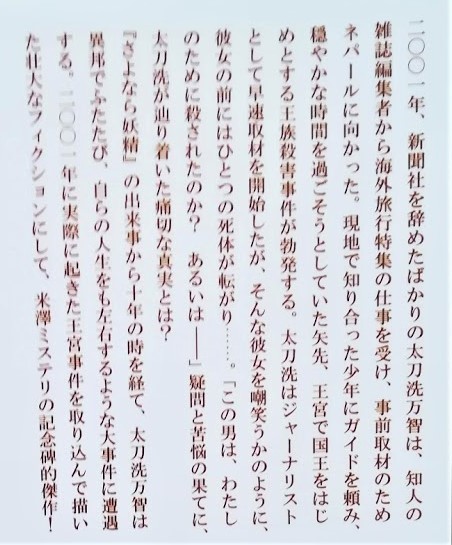 二〇〇一年、新聞社を辞めたばかりの太刀洗万智は、知人の
雑誌編集者から海外旅行特集の仕事を受け、事前取材のため
ネパールに向かった。現地で知り合った少年にガイドを頼み、
穏やかな時間を過ごそうとしていた矢先、王宮で国王をはじ
めとする王族殺害事件が勃発する。太刀洗はジャーナリスト
として早速取材を開始したが、そんな彼女を嘲笑うかのように、
彼女の前にはひとつの死体が転がり……。「この男は、わたし
のために殺されたのか？　あるいは――」疑問と苦悩の果てに、
太刀洗が辿り着いた痛切な真実とは？
『さよなら妖精』の出来事から十年の時を経て、太刀洗万智は
異邦でふたたび、自らの人生をも左右するような大事件に遭遇
する。二〇〇一年に実際に起きた王宮事件を取り込んで描い
た壮大なフィクションにして、米澤ミステリの記念碑的傑作！